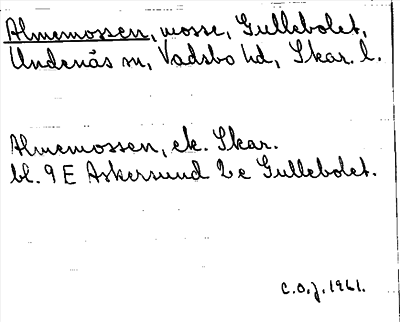 Almemossen, mosse, Gullebolet,
Undenäs sn, Vadsbo hd, Skar. l.
Almemossen, ek. Skar.
bl. 9 E Askersund 2e Gullebolet.
C.O.J. 1961.